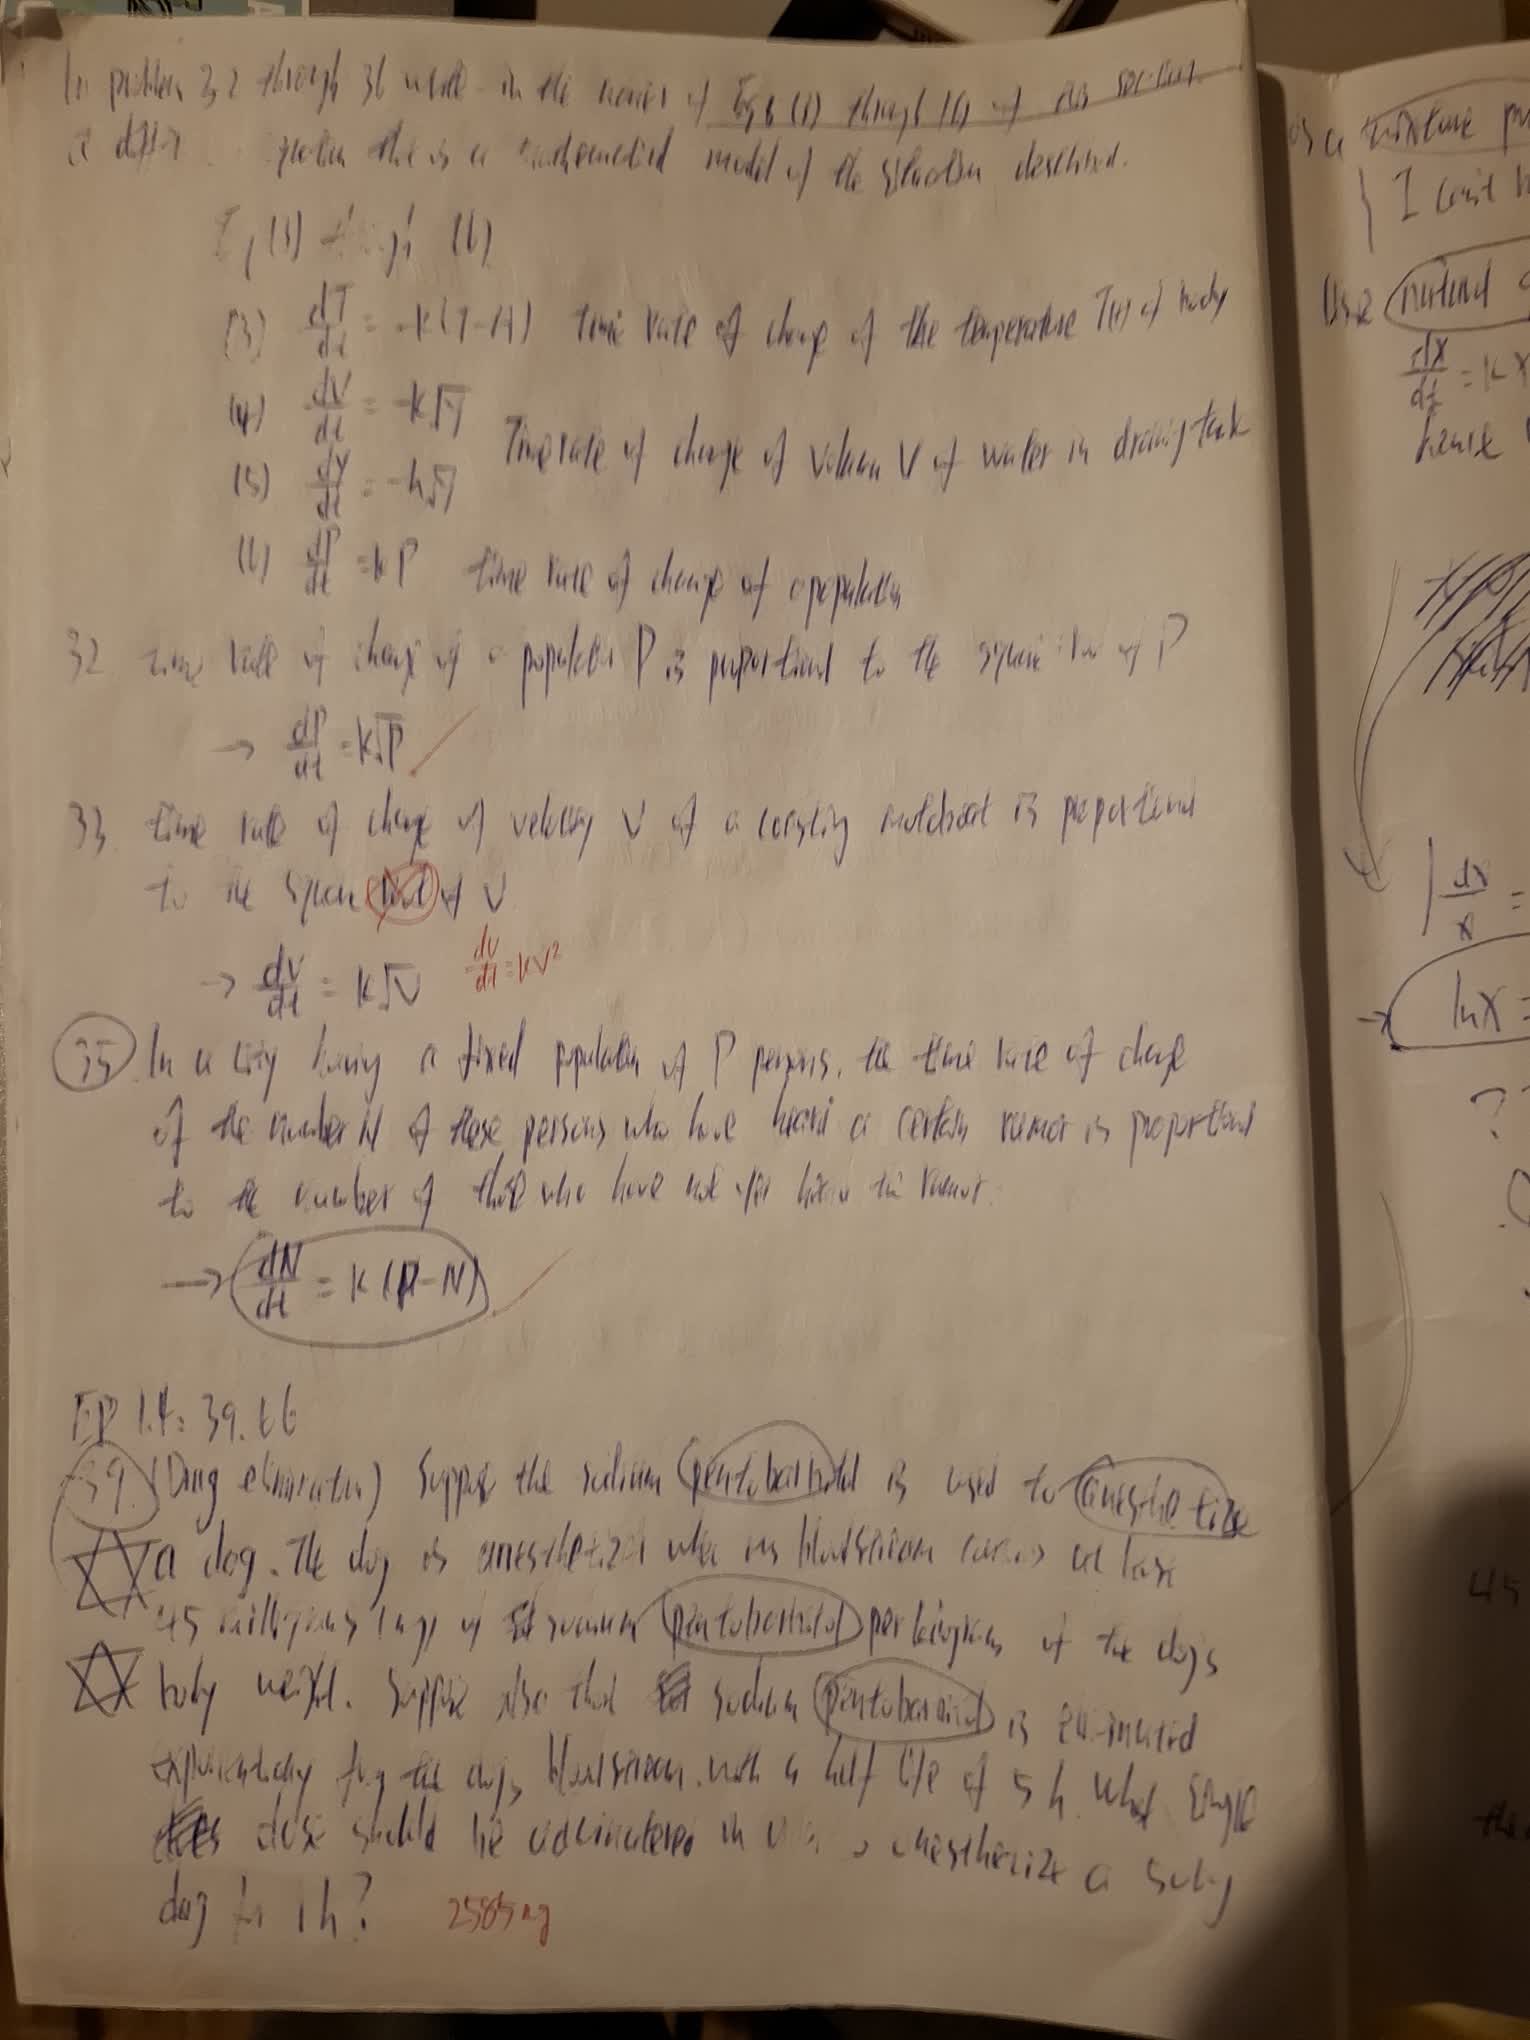 In problem 32 through 36 write in the manner of Eqs (3) through (6) of this section
a differ equation that is a mathematical model of the situation described.
Eq (3) through (6)
(3) dT/dt = -k(T-A) time rate of change of the temperature T(t) of body
(4) dV/dt = -k√y
Time rate of change of volume V of water in draining tank
(5) dy/dt = -h√y
(6) dP/dt = kP time rate of change of a population
32 time rate of change of a population P is proportional to the square root of P
→ dP/dt = k√P
33. time rate of change of velocity v of a coasting motorboat is proportional
to the square root of v
→ dv/dt = k√v dv/dt = kv²
35. In a city having a fixed population of P persons, the time rate of change
of the number N of these persons who have heard a certain rumor is proportional
to the number of those who have not yet heard the rumor.
→ dN/dt = k(P-N)
EP 1.4: 39. 66
39. (Drug elimination) Suppose the sodium pentobarbital is used to anesthetize
a dog. The dog is anesthetized when its bloodstream carries at least
45 milligrams (mg) of sodium pentobarbitol per kilograms of the dogs
body weight. Suppose also that sodium pentobarbitol is eliminated
exponentially from the dogs bloodstream, with a half life of 5h. What single
dose should be administered in to anesthetize a 50kg
dog for 1h? 2585mg
is a mixture
I can't
Use natural
dx/dt = kx
hence
dx/x =
→ lnx =
??
45